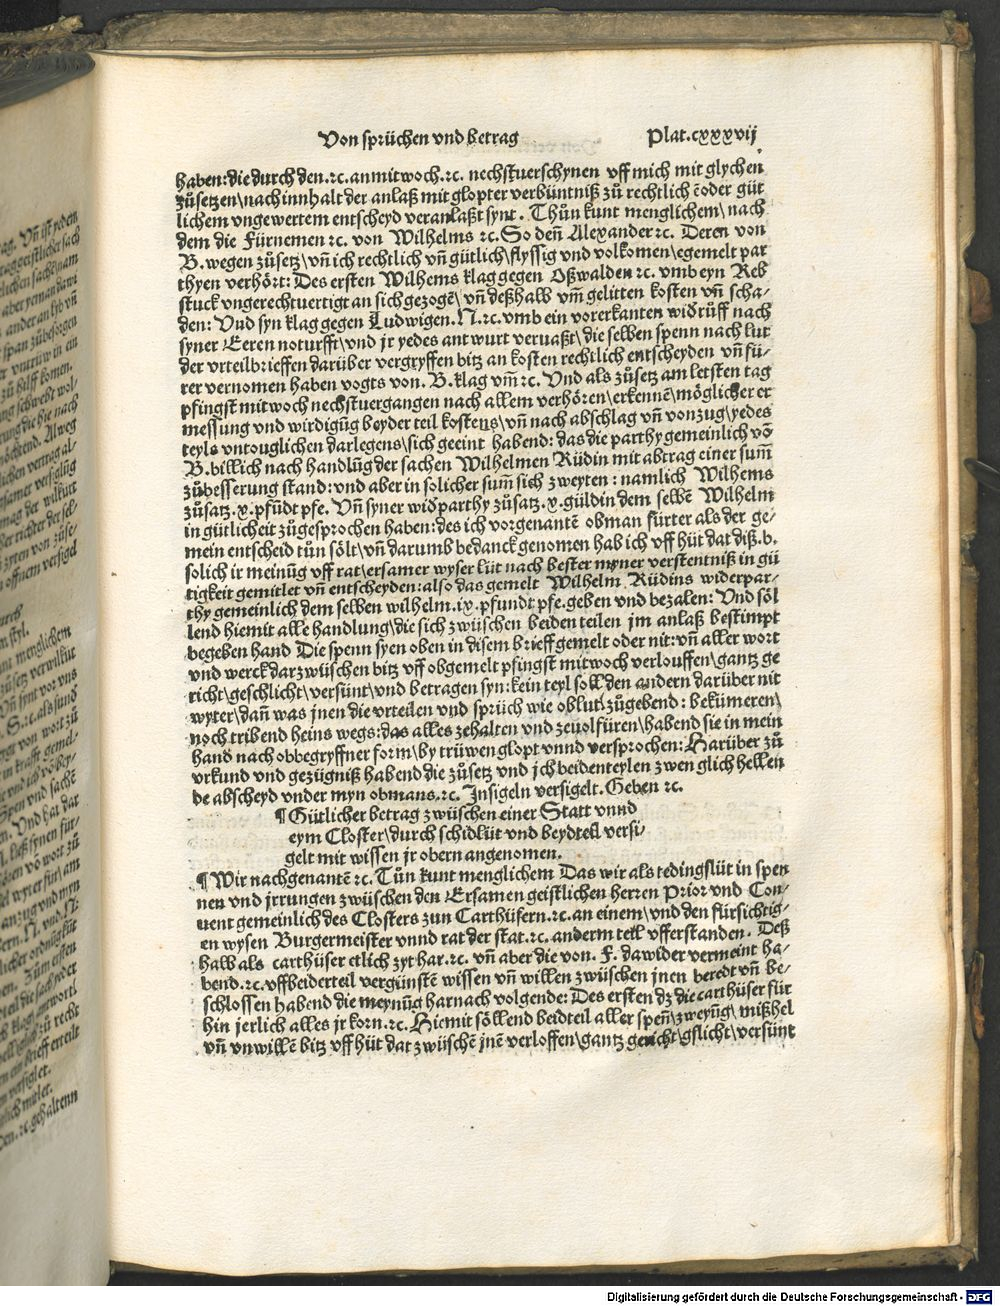 Von sprüchen vnd betrag Plat.cxxxvij
haben:die durch den.⁊c.an mitwoch.⁊c. nechstuerschynen vff mich mit glychen
zůsetzen\nach innhalt der anlaß mit glopter verbüntniß zů rechtlichē oder güt
lichem vngewertem entscheyd veranlaßt synt. Thůn kunt menglichem\ nach
dem die Fürnemen ⁊c. von Wilhelms ⁊c. So deñ Alexander ⁊c. Deren von
B. wegen zůsetz\ vñ ich rechtlich vñ gütlich\ flyssig vnd volkomen\ egemelt par
thyen verhört: Des ersten Wilhems klag gegen Oßwalden ⁊c. vmb eyn Reb
stuck vngerechtuertigt an sich gezogē\ vñ deßhalb vm̄ gelitten kosten vñ scha⸗
den: Vnd syn klag gegen Ludwigen.N.⁊c.vmb ein vorerkanten widrüff nach
syner Eeren noturfft\ vnd jr yedes antwurt veruaßt\ die selben spenn nach lut
der vrteilbrieffen darüber vergryffen bitz an kosten rechtlich entscheyden vñ fü⸗
rer vernomen haben vogts von. B. klag vm̄ ⁊c. Vnd als zůsetz am letsten tag
pfingst mitwoch nechstuergangen nach allem verhören\ erkennē\ möglicher er
messung vnd wirdigūg beyder teil kostens\ vñ nach abschlag vñ vonzug\ yedes
teyls vntouglichen darlegens\ sich geeint habend: das die parthy gemeinlich vō
B. billich nach handlūg der sachen Wilhelmen Rüdin mit abtrag einer sum̄
zůbesserung stand: vnd aber in solicher sum̄ sich zweyten: namlich Wilhems
zůsatz.x.pfüdt pfe. Vñ syner widparthy zůsatz.x.güldin dem selbē Wilhelm
in gütlicheit zůgesprochen haben: des ich vorgenantē obman fürter als der ge⸗
mein entscheid tün sölt\ vñ darumb bedanck genomen hab ich vff hüt dat diß.b.
solich ir meinūg vff rat\ ersamer wyser lüt nach bester myner verstentniß in gü
tigkeit gemitlet vñ entscheyden: also das gemelt Wilhelm Rüdins widerpar⸗
thy gemeinlich dem selben wilhelm.ix.pfundt pfe.geben vnd bezalen: Vnd söl
lend hiemit alle handlung\ die sich zwüschen beiden teilen jm anlaß bestimpt
begeben hand Die spenn syen oben in disem brieff gemelt oder nit: vñ aller wort
vnd werck darzwüschen bitz vff obgemelt pfingst mitwoch verlouffen\ gantz ge
richt\ geschlicht\ versünt\ vnd betragen syn: kein teyl soll den andern darüber nit
wyter\ dañ was jnen die vrteilen vnd sprüch wie oblut\ zůgebend: bekümeren\
noch tribend heins wegs: das alles zehalten vnd zeuolfüren\ habend sie in mein
hand nach obbegryffner form\ by trüwen glopt vnnd versprochen: Harüber zů
vrkund vnd gezügniß habend die zůsetz vnd jch beiden teylen zwen glich hellen
de abscheyd vnder myn obmans.⁊c. Jnsigeln versigelt. Geben ⁊c.
¶ Gütlicher betrag zwüschen einer Statt vnnd
eym Closter\ durch schidlüt vnd beydteil versi⸗
gelt mit wissen jr obern angenomen.
¶ Wir nachgenantē ⁊c. Tůn kunt menglichem Das wir als tedingslüt in spen
nen vnd jrrungen zwüschen den Ersamen geistlichen herren Prior vnd Con⸗
uent gemeinlich des Closters zun Carthüsern.⁊c. an einem\ vnd den fürsichtig⸗
en wysen Burgermeister vnnd rat der stat.⁊c. anderm teil vfferstanden. Deß
halb als carthüser etlich zyt har.⁊c. vñ aber die von. F. dawider vermeint ha⸗
bend.⁊c. vff beiderteil vergünstē wissen vñ willen zwüschen jnen beredt vñ be⸗
schlossen habend die meynūg harnach volgende: Des ersten dz die carthüser für
hin jerlich alles jr korn.⁊c. Hiemit söllend beidteil aller speñ\ zweyūg\ mißhel
vñ vnwillē bitz vff hüt dat zwüschē jnē verloffen\ gantz gericht\ gslicht\ versünt
Digitalisierung gefördert durch die Deutsche Forschungsgemeinschaft - DFG